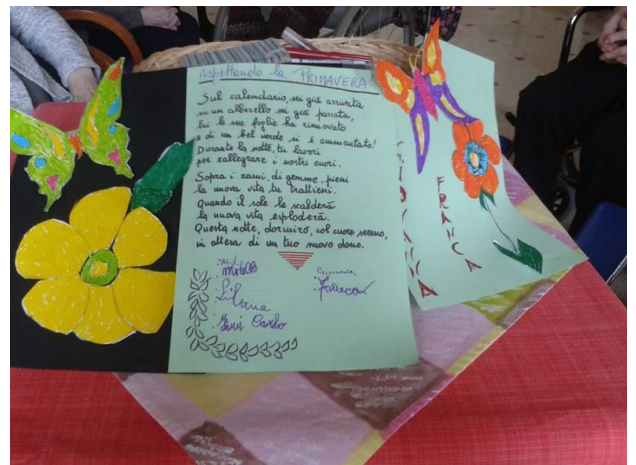 Aspettando la PRIMAVERA!
Sul calendario, sei già arrivata
su un alberello sei già passata,
lui le sue foglie ha rinnovato
e di un bel verde si è ammantato!
Durante la notte, tu lavori
per rallegrare i nostri cuori.
Sopra i rami, di gemme, pieni
la nuova vita tu trattieni.
Quando il sole la scalderà
la nuova vita esploderà.
Questa notte, dormirò, col cuore sereno,
in attesa di un tuo nuovo dono.
Franca
Liliana
Carlo
GIOVANNA
FRANCA